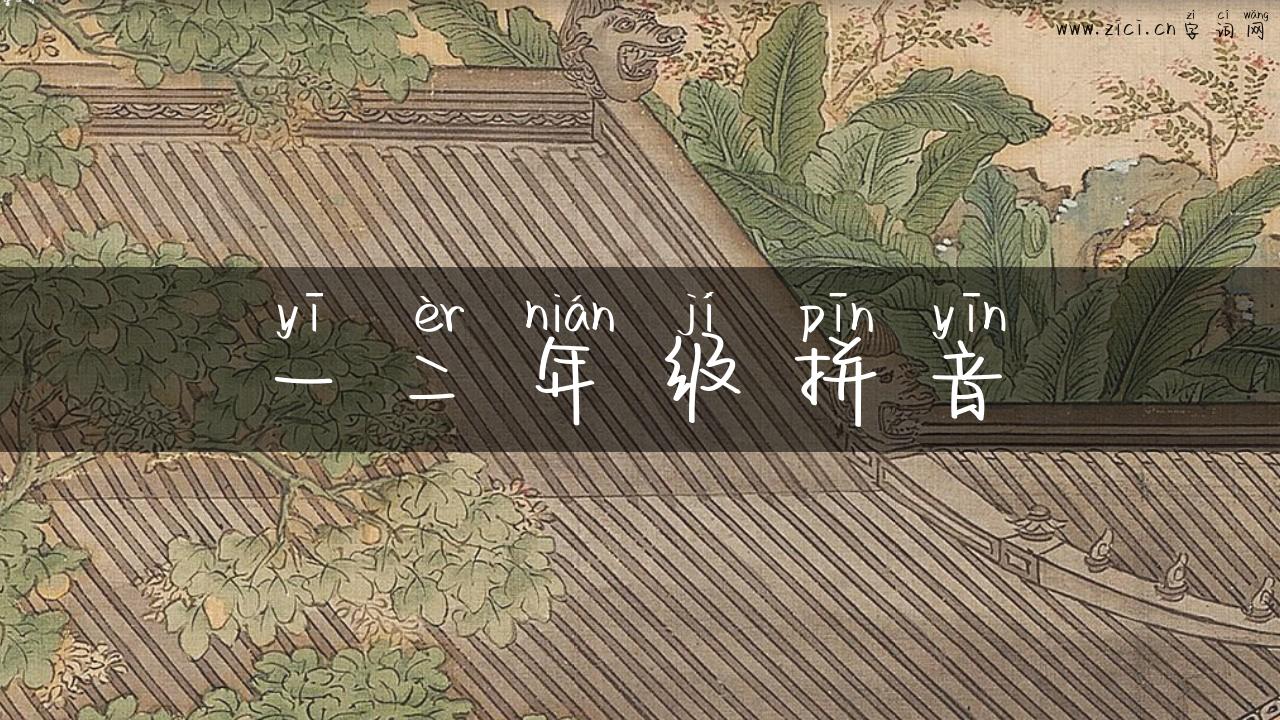 zì cí wǎng
www.zici.cn 字词网
yī èr nián jí pīn yīn
一二年级拼音